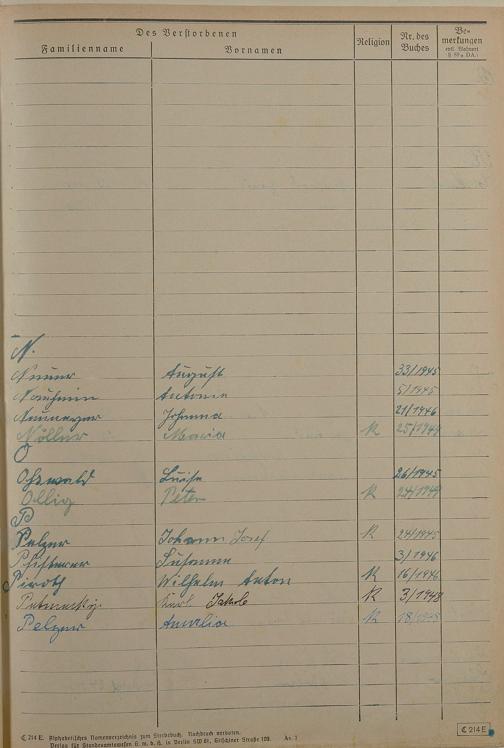 Des Verstorbenen
Familienname Vornamen Religion Nr. des Buches Be-merkungen
N.
August 33/1945
Antonie 5/1945
Neumeyer Johanna 21/1946
Nöller Maria K 25/1949
O
Oswald Luise 26/1945
Ollig Peter K 24/1949
P
Pelzer Johann Josef K 24/1945
Pfisterer Susanna 3/1946
Piroth Wilhelm Anton K 16/1946
Karl Jakob K 3/1948
Pelzer Amalia K 18/
C 214 E. Alphabetisches Namenverzeichnis zum Sterbebuch. Nachdruck verboten.
Verlag für Standesamtswesen G. m. b. H. in Berlin SW 61, Gitschiner Straße 109.
C 214 E